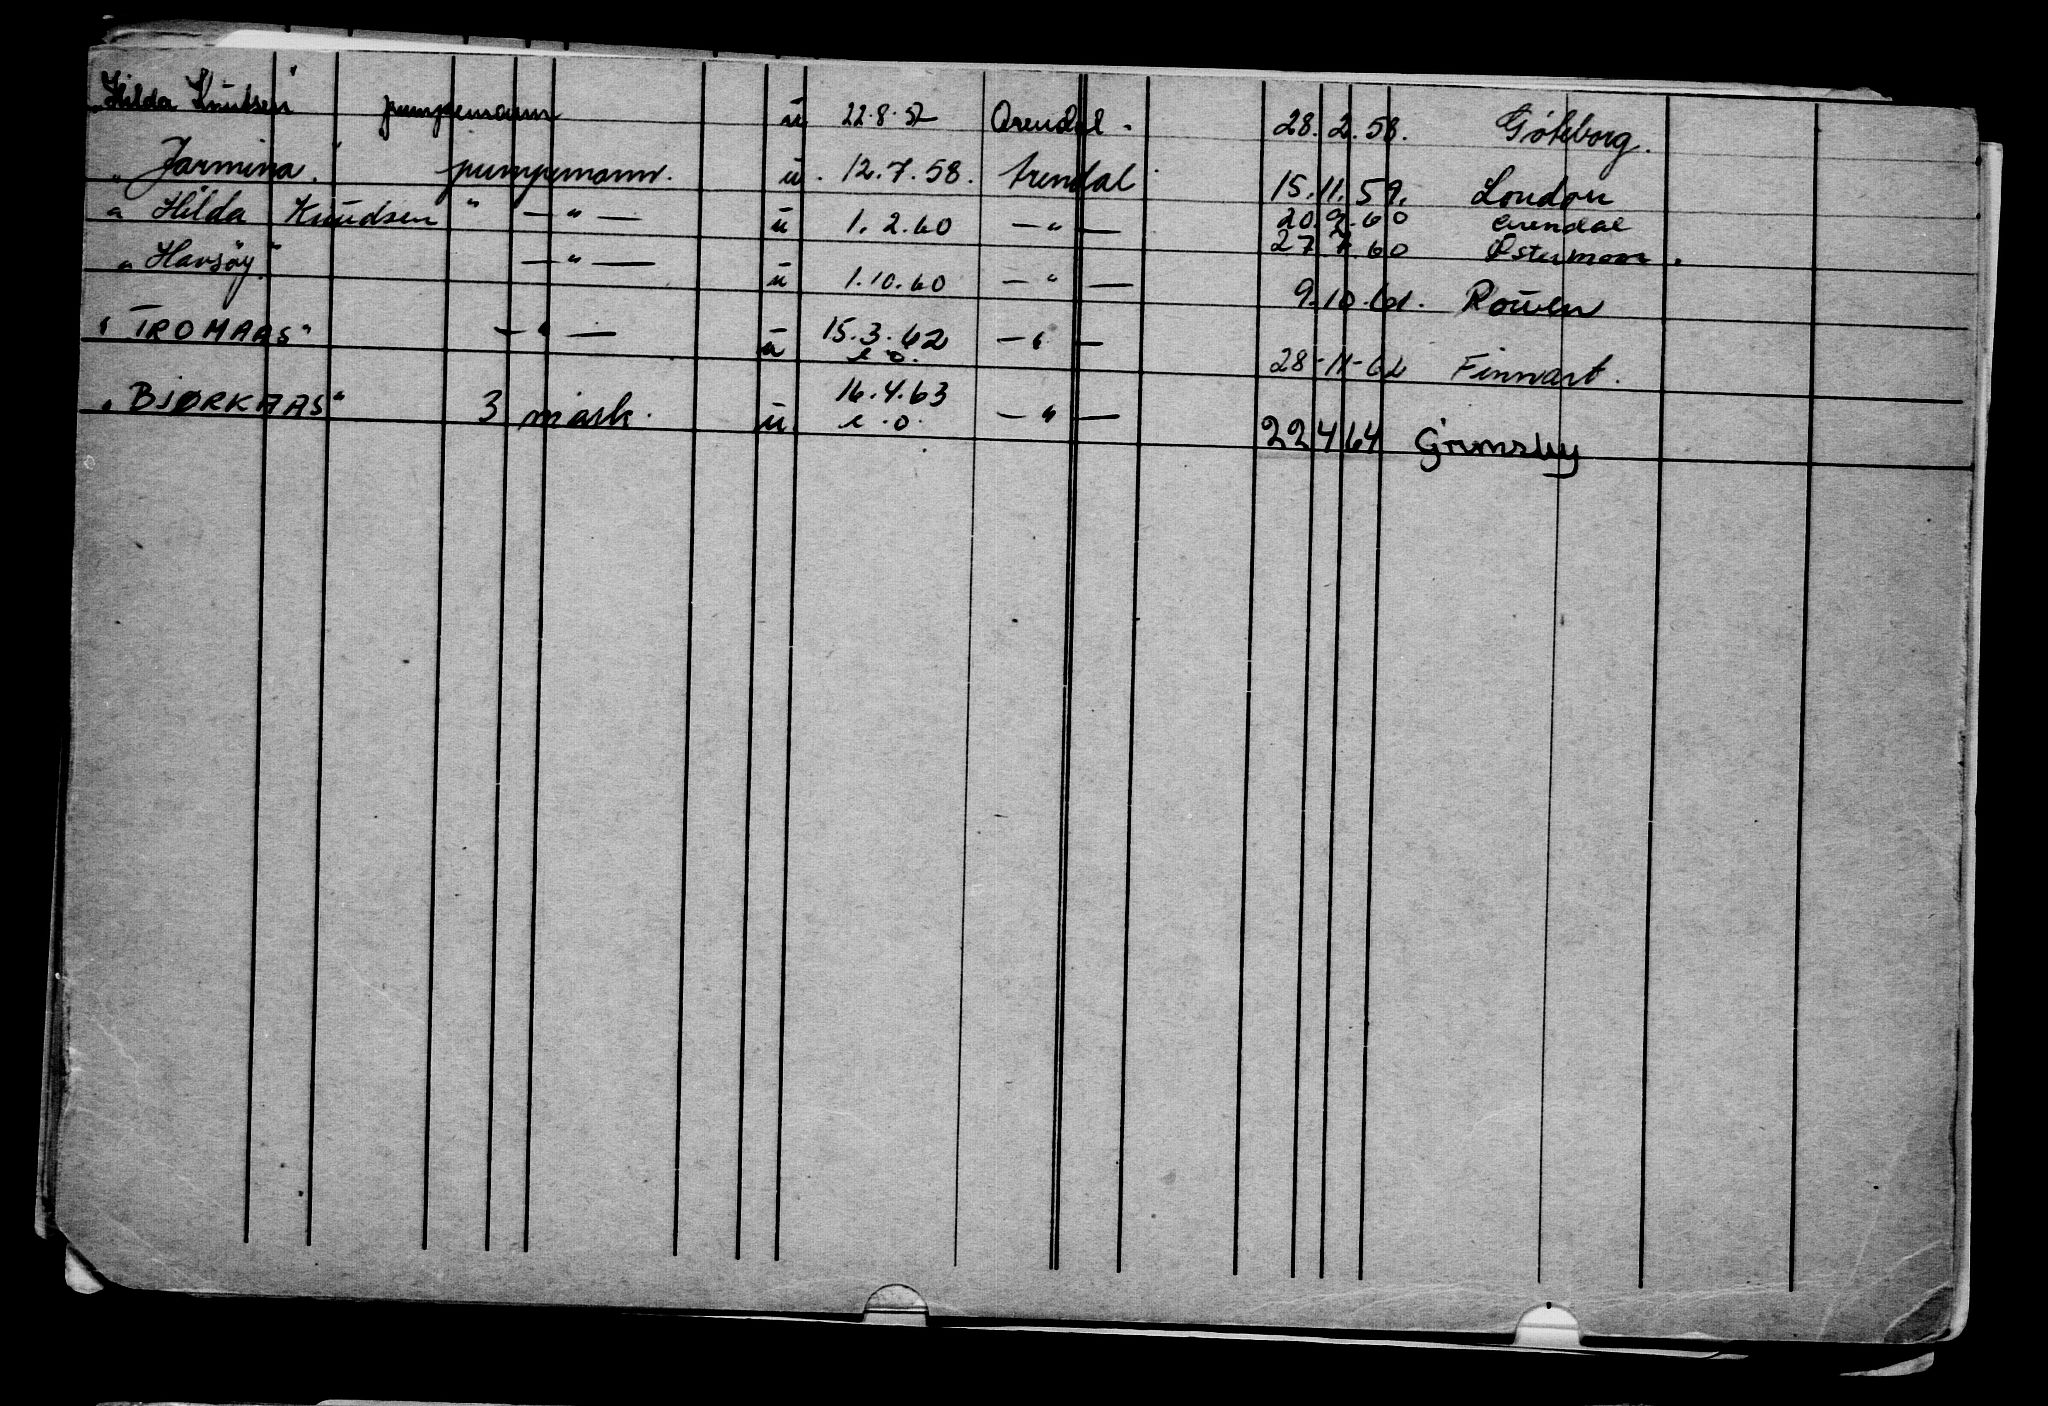 "Hilda Knutsen" pumpemann u 22.8.57 Arendal. 28.2.58. Göteborg.
"Jarmina." pumpemann. u. 12.7.58. Arendal 15.11.59. London
"Hilda Knudsen" — " — u 1.2.60 — " — 20 2.60 Arendal
27 7.60 Ostermoor.
"Havsöy" — " — u 1.10.60 — " — 9.10.61. Rouen
"TROMAAS" — " — u 15.3.62 — " — 28-11-62 Finnart.
e.o.
"BJØRKAAS" 3 mask. u 16.4.63 — " — 22 4 64 Grimsby
e.o.